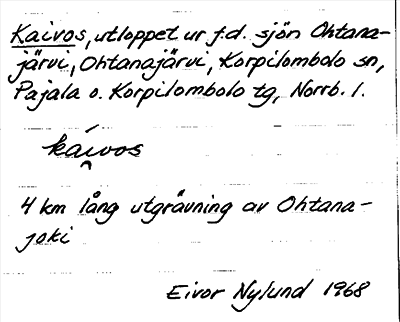 Kaivos, utloppet ur f.d. sjön Ohtana-
järvi, Ohtanajärvi, Korpilombolo sn,
Pajala o. Korpilombolo tg, Norrb. l.
káivos
4 km lång utgrävning av Ohtana-
joki
Eivor Nylund 1968